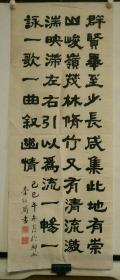 群賢畢至少長咸集此地有崇
山峻嶺茂林脩竹又有清流激
湍映帶左右引以為流一觴一
詠一歌一曲叙幽情
己巳年冬